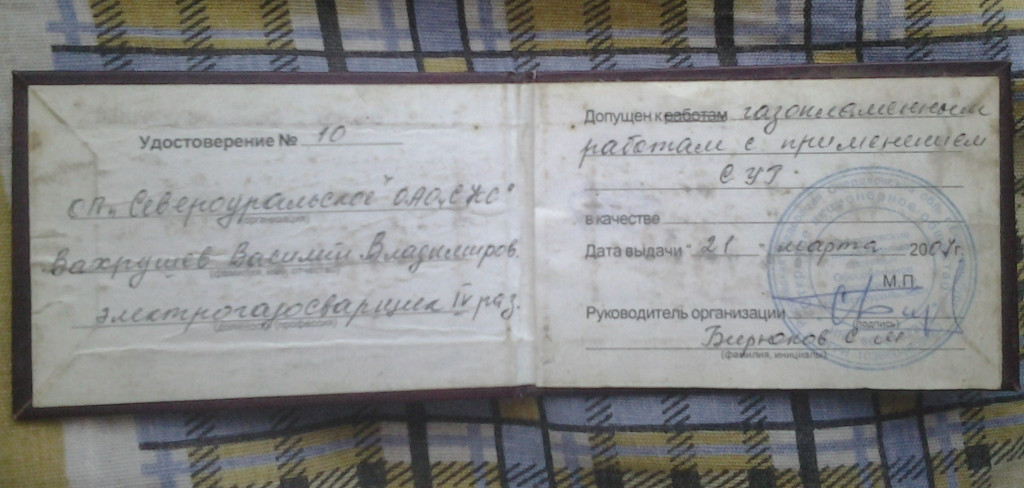 Удостоверение № 10
СП „Североуральское" ОАО „СЖС"
(организация)
Вахрушев Василий Владимиров.
(фамилия, имя, отчество)
электрогазосварщик IV раз.
(должность, профессия)
Допущен к работам газопламенным
работам с применением
СУГ.
в качестве
Дата выдачи " 21 " марта 200 г.
М.П.
Руководитель организации
(подпись)
Бирюков С М
(фамилия, инициалы)